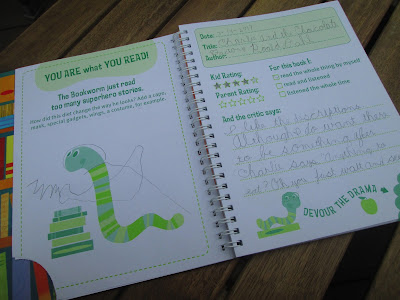 YOU ARE what YOU READ!
The Bookworm just read
too many superhero stories.
How did this diet change the way he looks? Add a cape,
mask, special gadgets, wings, a costume, for example.
Date:
Title: Charlie and the Chocolate
Author: Roald Dahl
Kid Rating:
Parent Rating:
For this book I:
read the whole thing by myself
read and listened
listened the whole time
And the critic says:
I like the
Although I do want there
to be
Charlie says
eat? Oh, you just wait and see
DEVOUR THE DRAMA